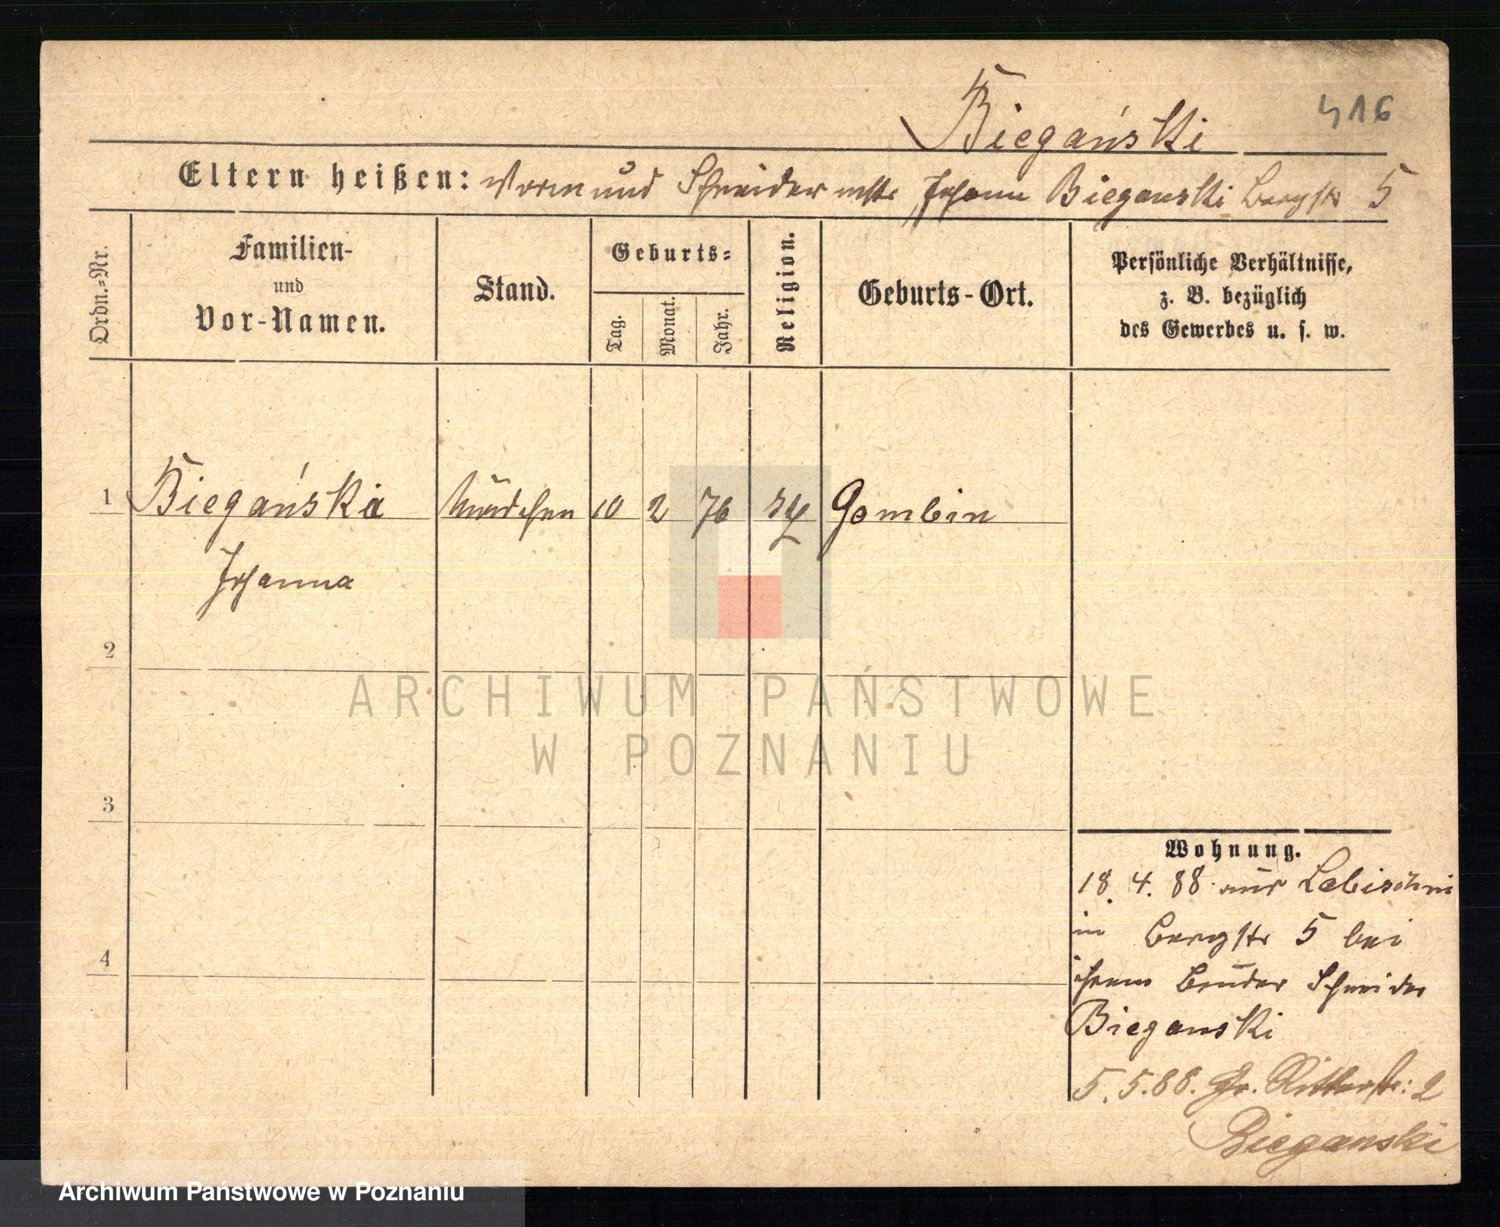 Biegański
416
Eltern heißen: Vormund Schneider mstr Johann Bieganski Bergstr 5
Ordn.-Nr.
Familien-
und
Vor-Namen.
Stand.
Geburts-
Tag.
Monat.
Jahr.
Religion.
Geburts-Ort.
Persönliche Verhältnisse,
z. B. bezüglich
des Gewerbes u. s. w.
1 Biegańska Mädchen 10 2 76 Gombin
Johanna
2
3
4
Wohnung.
18. 4. 88 aus Labischin
in Bergstr 5 bei
ihrem Bruder Schneider
Bieganski
5. 5. 88. Gr. Ritterstr: 2
Bieganski
ARCHIWUM PAŃSTWOWE
W POZNANIU
Archiwum Państwowe w Poznaniu